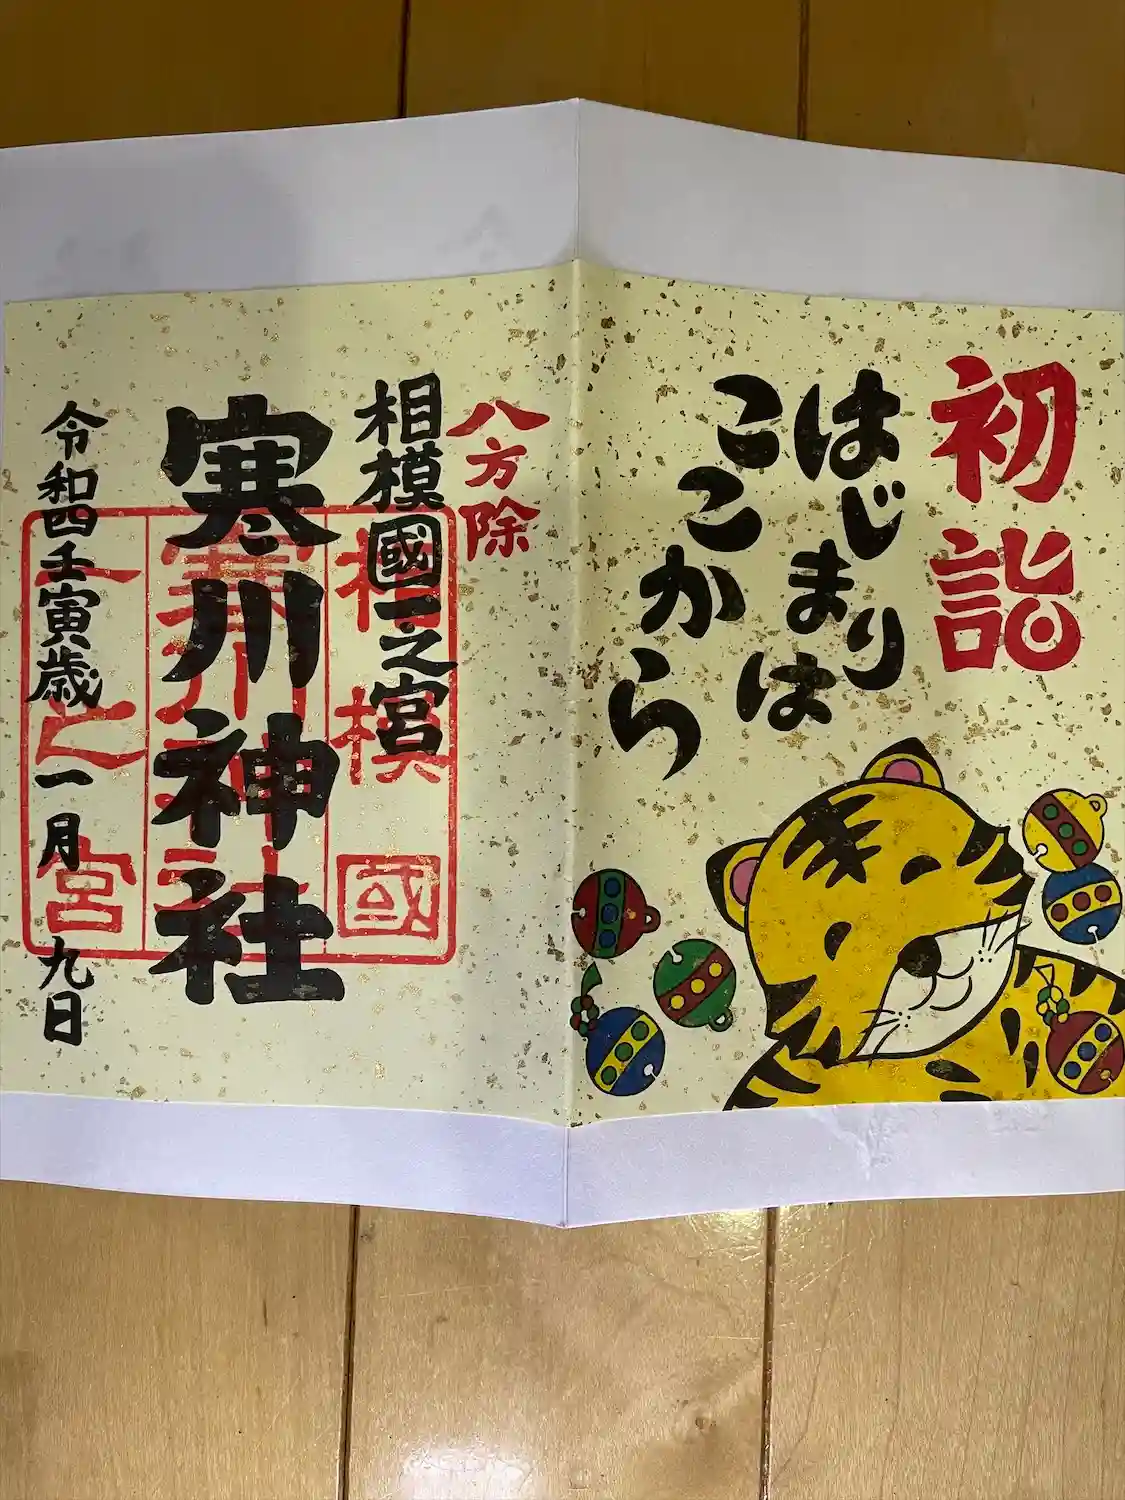 初詣
はじまりは
ここから
八方除
相模國一之宮
寒川神社
令和四壬寅歳一月九日
相模國
寒川神社
一之宮